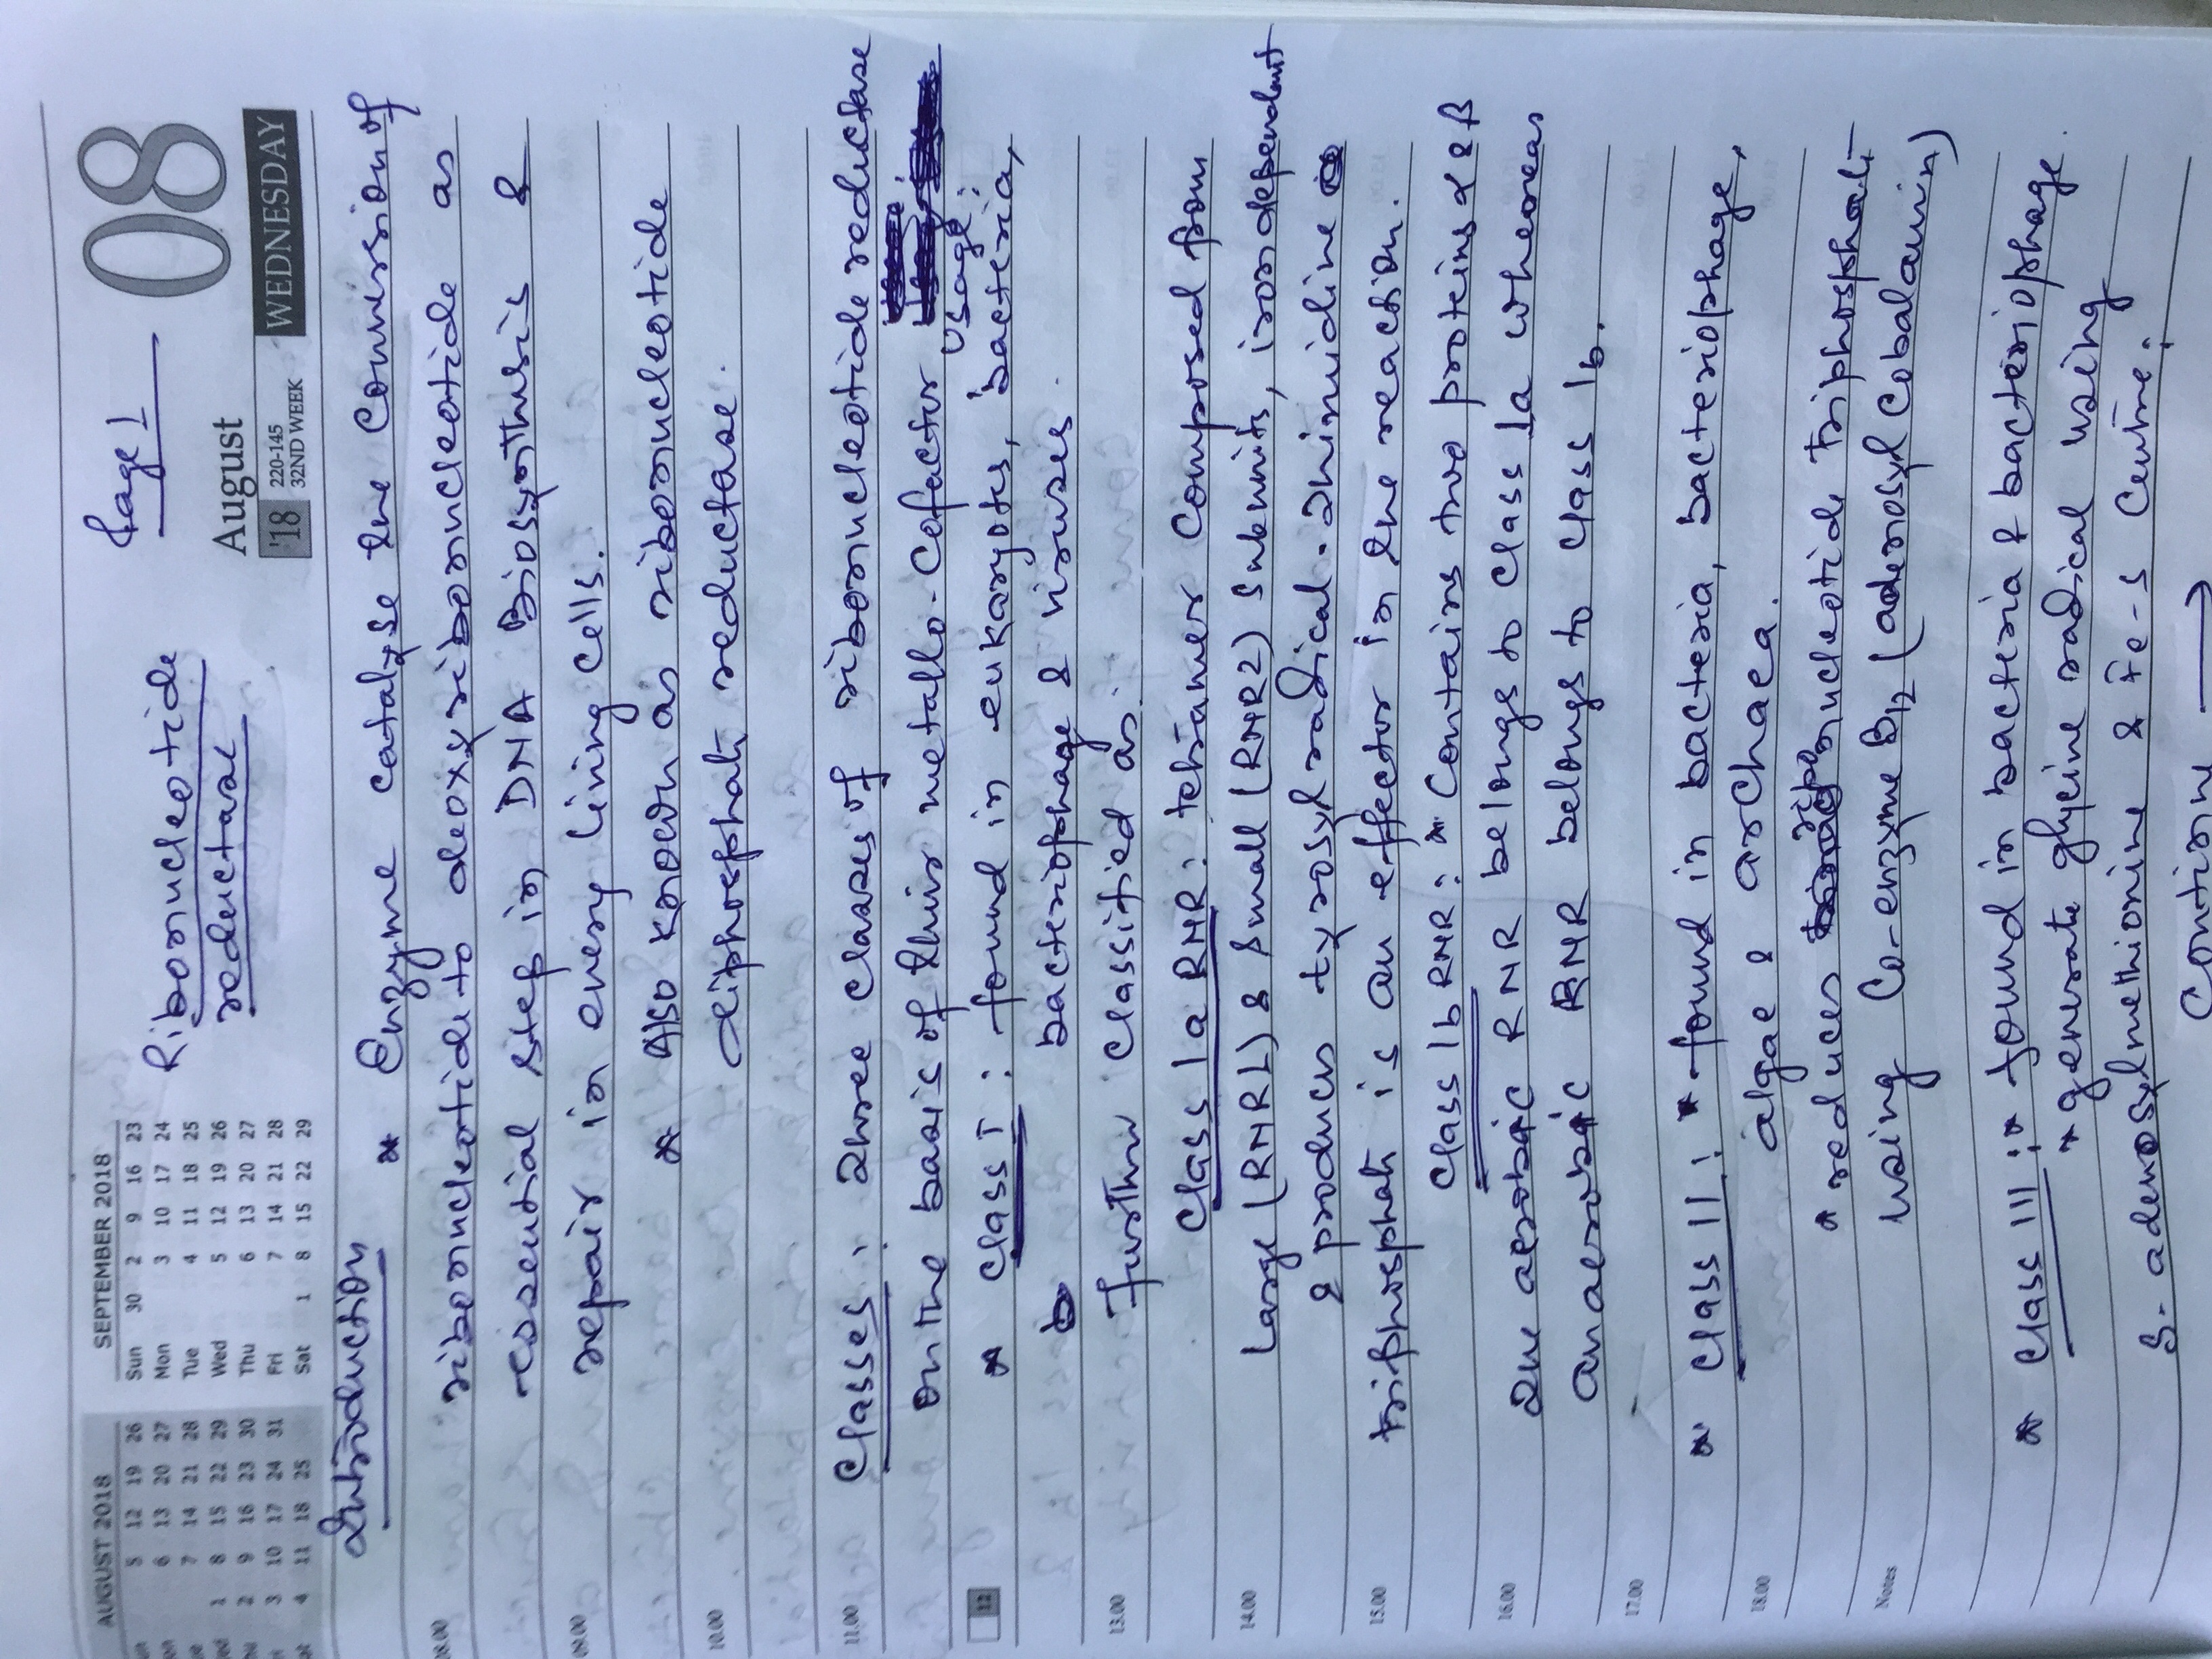 Page 1
08
Ribonucleotide
reductase
August
WEDNESDAY
'18
220-145
32ND WEEK
AUGUST 2018
5 12 19 26
6 13 20 27
7 14 21 28
1 8 15 22 29
2 9 16 23 30
3 10 17 24 31
4 11 18 25
SEPTEMBER 2018
Sun 30 2 9 16 23
Mon 3 10 17 24
Tue 4 11 18 25
Wed 5 12 19 26
Thu 6 13 20 27
Fri 7 14 21 28
Sat 1 8 15 22 29
Introduction
* Enzyme catalyse the Conversion of
ribonucleotide to deoxyribonucleotide as
essential step in DNA Biosynthesis &
repair in every living cells.
* Also known as ribonucleotide
diphosphate reductase.
Classes: Three classes of ribonucleotide reductase
on the basis of their metallo-Cofactor usage:
* Class I : found in eukaryotes, bacteria,
bacteriophage & viruses.
further classified as:
Class Ia RNR: tetramer Composed from
Large (RNRL) & Small (RNR2) Subunits, iron dependent
& produces tyrosyl radical. Thimidine
triphosphate is an effector in the reaction.
Class Ib RNR: * Contains two proteins α & β
The aerobic RNR belongs to Class Ia whereas
anaerobic RNR belongs to class Ib.
* Class II: * found in bacteria, bacteriophage,
algae & archaea.
* reduces ribonucleotide triphosphate
using Co-enzyme B12 (adenosyl Cobalamin)
* Class III: * found in bacteria & bacteriophage
* generate glycine radical using
S-adenosylmethionine & Fe-S Centre.
Continue →
08.00
09.00
10.00
11.00
12
13.00
14.00
15.00
16.00
17.00
18.00
Notes